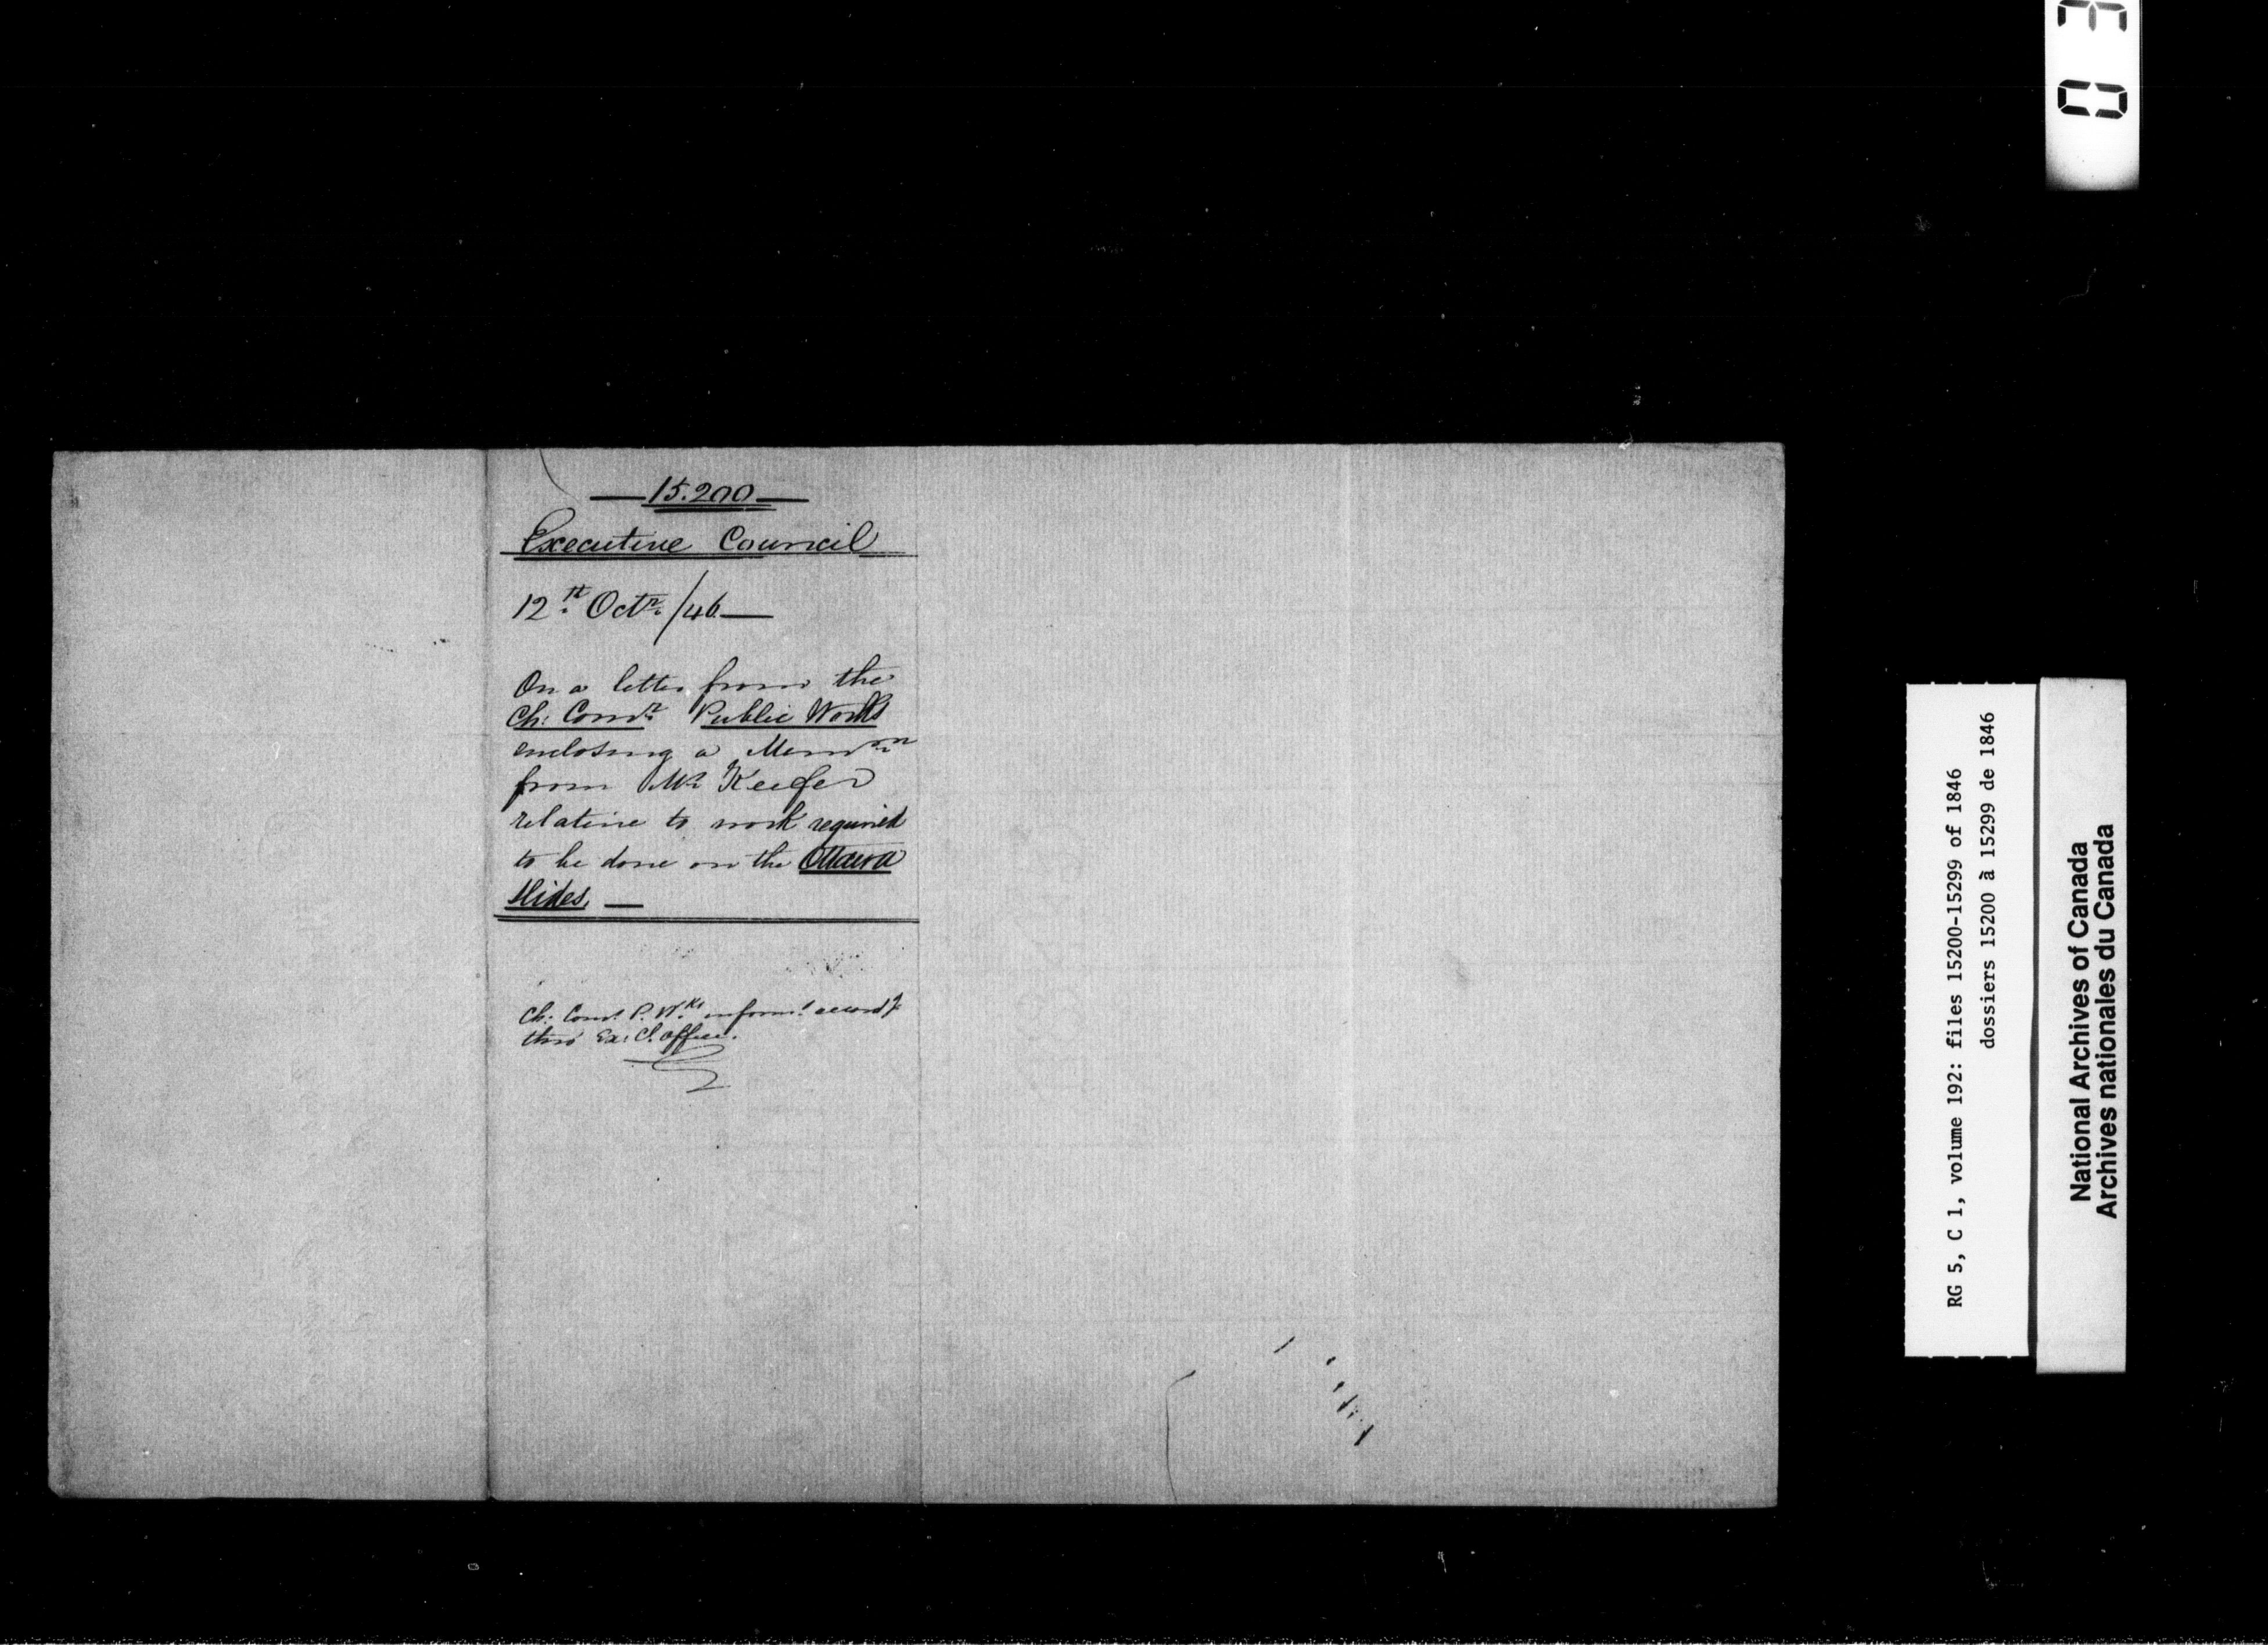 15.200
Executive Council
12th Octr. /46
On a letter from the
Ch: Comr. Public Works
enclosing a Memom
from Mr Keefer
relative to work required
to be done on the Ottawa
Slides.
Ch: Comr. P. Wks. informd. accordy
thro' Ex: Cl. office.
RG 5, C 1, volume 192: files 15200-15299 of 1846
dossiers 15200 à 15299 de 1846
National Archives of Canada
Archives nationales du Canada
03